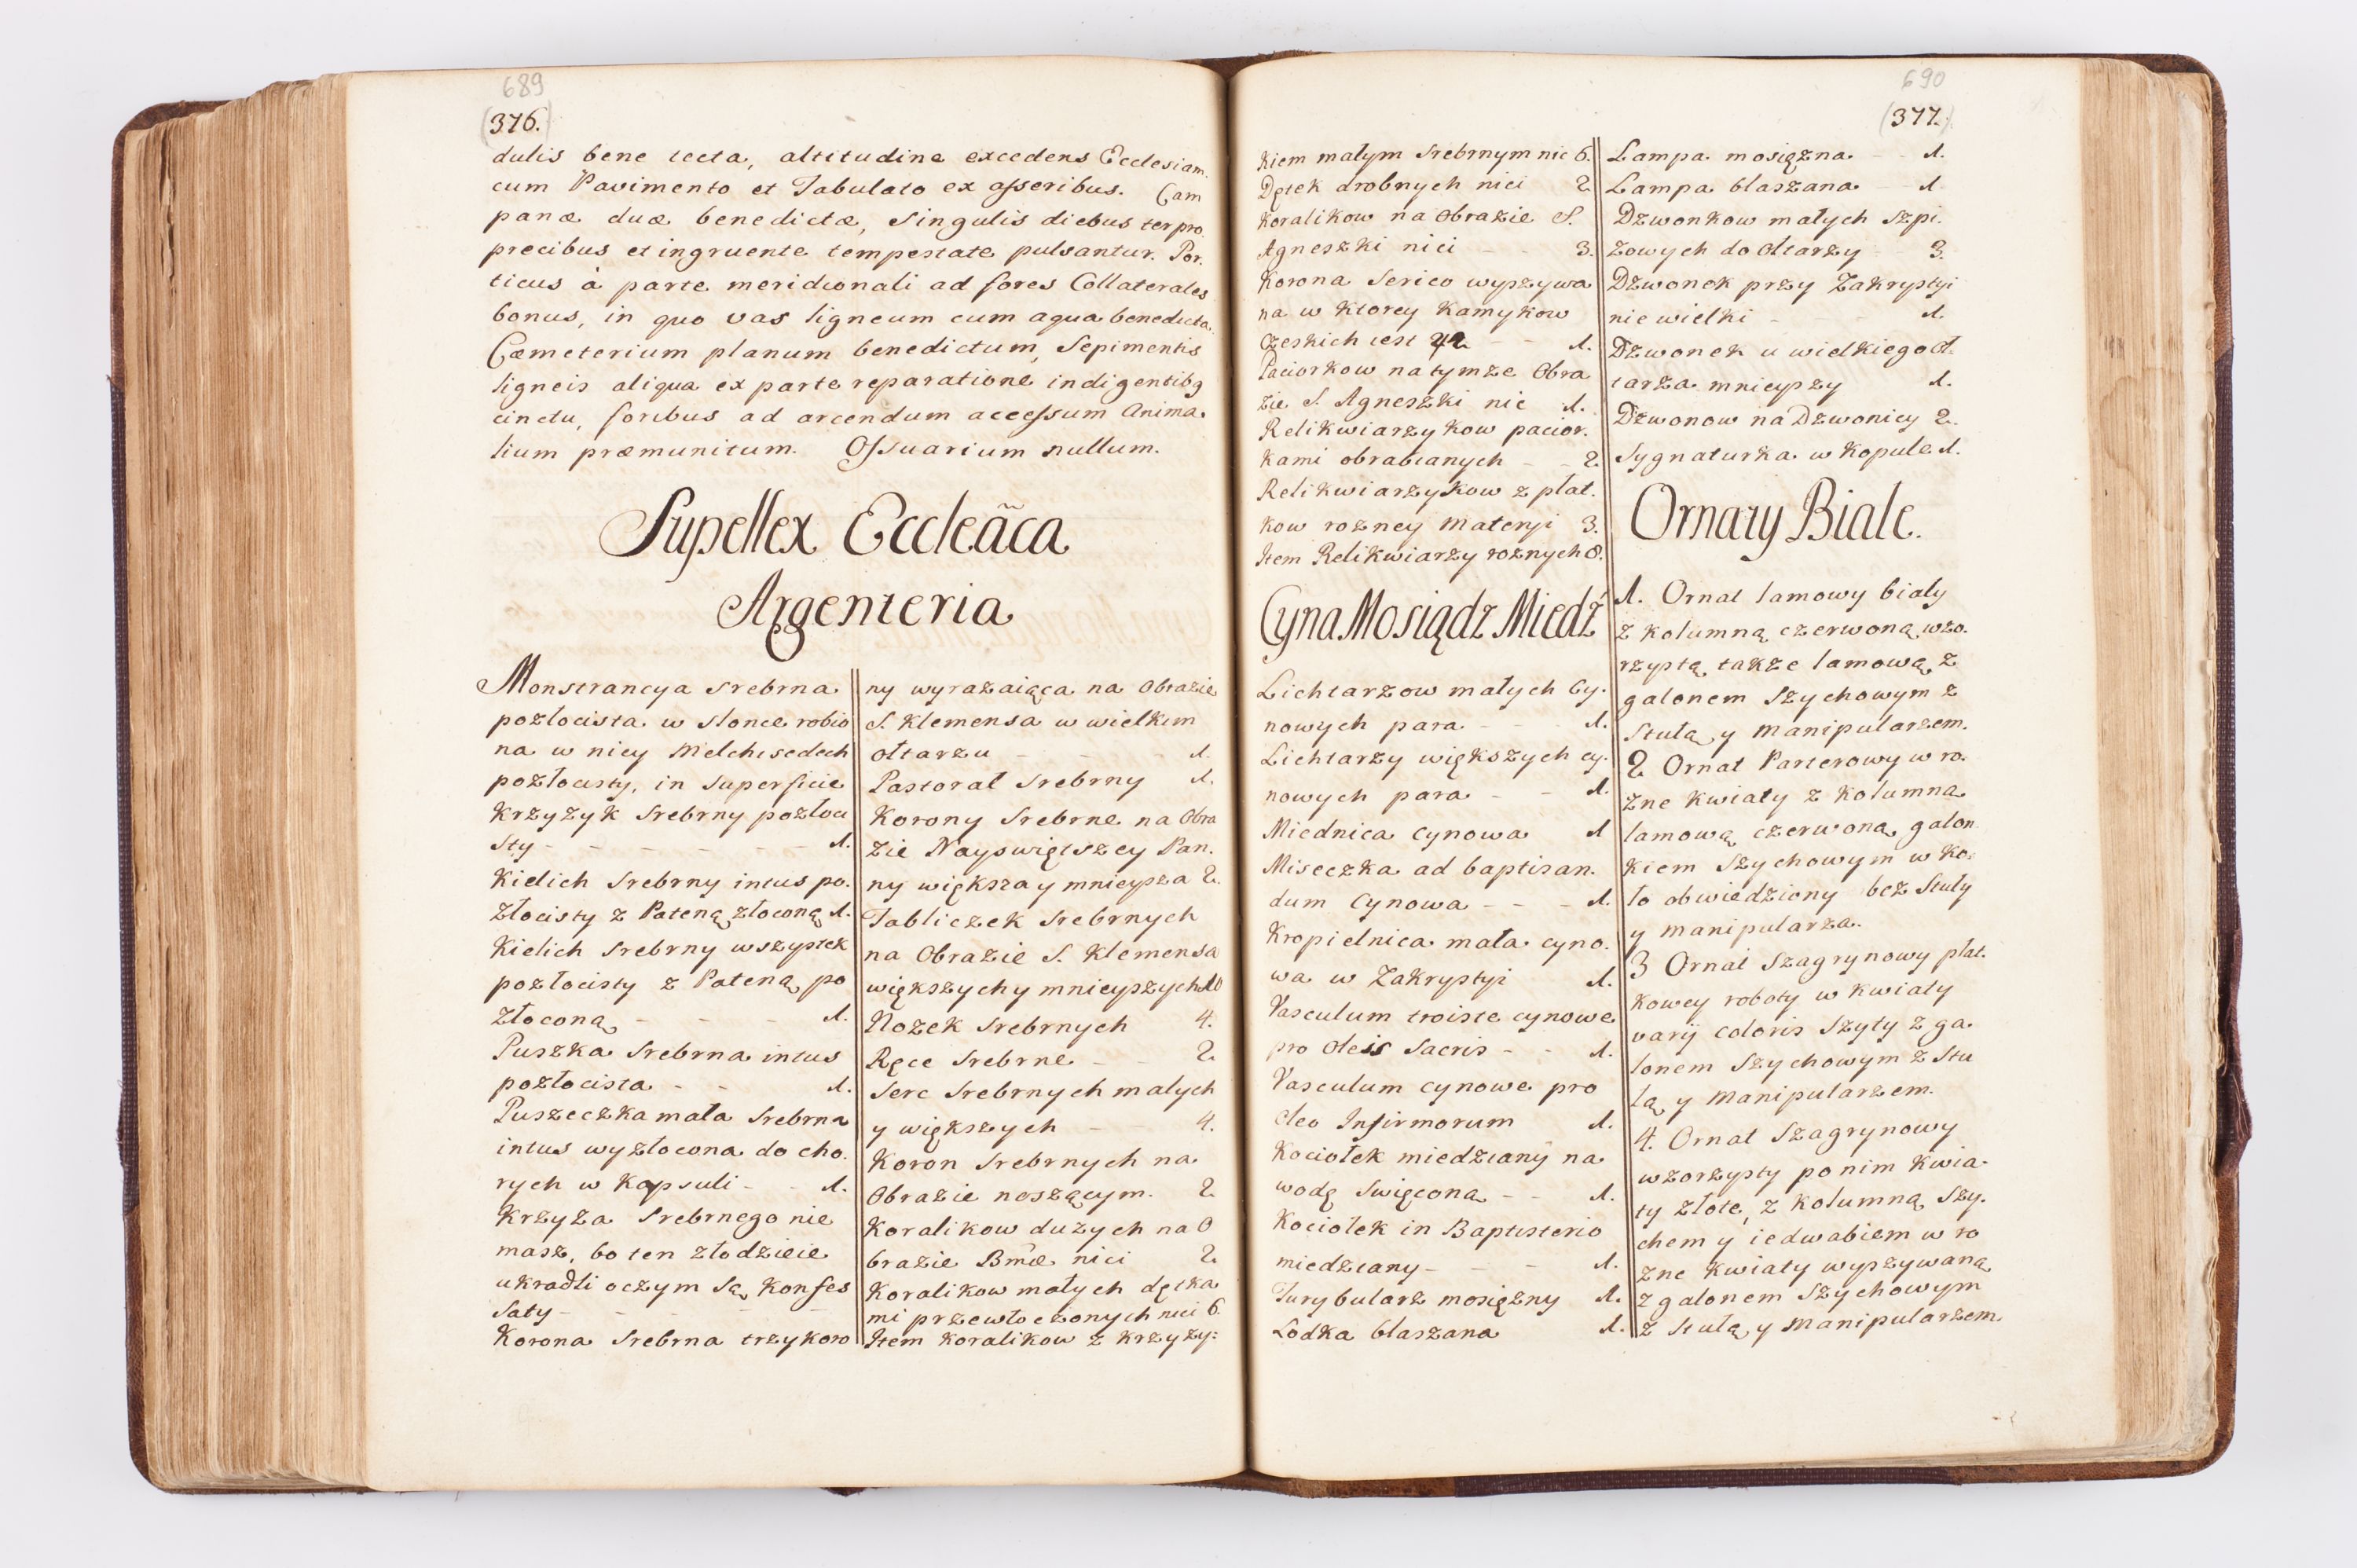 689
(376.)
dulis bene tecta, altitudine excedens Ecclesiam.
cum Pavimento et Tabulato ex asseribus. Cam
panæ duæ benedictæ, singulis diebus ter pro
precibus et ingruente tempestate pulsantur. Por.
ticus à parte meridionali ad fores Collaterales
bonus, in quo vas ligneum cum aqua benedicta.
Cæmeterium planum benedictum, Sepimentis
ligneis aliqua ex parte reparatione indigentibq
cinctu, foribus ad arcendum accessum Anima.
lium præmunitum. Ossuarium nullum.
Supellex Eccleãca
Argenteria
Monstrancya srebrna
pozłocista w słonce robio
na w niey Melchisedech
pozłocisty, in superficie
Krzyżyk srebrny pozłoci
sty - - - - - - 1.
Kielich srebrny intus po.
złocisty z Pateną złoconą 1.
Kielich srebrny wszystek
pozłocisty z Pateną po
złoconą - - - 1.
Puszka srebrna intus
pozłocista - - 1.
Puszeczka mała srebrna
intus wyzłocona do cho.
rych w Kapsuli - - 1.
Krzyża srebrnego nie
masz, bo ten złodzieie
ukradli o czym są Konfes
saty - - - - -
Korona srebrna trzykoro
ny wyrażaiąca na Obrazie
S. Klemensa w wielkim
ołtarzu - - - 1.
Pastorał srebrny 1.
Korony srebrne na Obra
zie Nayswiętszey Pan.
ny większa y mnieysza 2.
Tabliczek srebrnych
na Obrazie S. Klemensa
większych y mnieyszych 10
Nozek srebrnych 4.
Ręce srebrne - - 2.
Serc srebrnych małych
y większych - - 4.
Koron srebrnych na
Obrazie noszącym. 2.
Koralikow dużych na O
brazie Bmæ nici 2.
Koralikow małych dętka
mi przewłoczonych nici 6.
Item koralikow z krzyży:
690
(377.)
kiem małym srebrnym nic 6.
Dętek drobnych nici 2
Koralikow na Obrazie S.
Agneszki nici - - 3.
Korona serico wyszywa
na w ktorey kamykow
Czeskich iest 42 - - 1.
Paciorkow na tymze Obra
zie S. Agneszki nic 1.
Relikwiarzykow pacior.
kami obrabianych - - 2.
Relikwiarzykow z płat.
kow rozney materyi 3.
Item Relikwiarzy roznych 8.
Cyna Mosiądz Miedź
Lichtarzow małych Cy.
nowych para - - 1.
Lichtarzy większych cy.
nowych para - - 1.
Miednica cynowa 1
Miseczka ad baptisan.
dum Cynowa - - - 1.
Kropielnica mała cyno.
wa w Zakrystyi 1.
Vasculum troiste cynowe
pro Oleis Sacris - - 1.
Vasculum cynowe pro
Oleo Infirmorum 1.
Kociołek miedziany na
wodę swięconą - - 1.
Kociołek in Baptisterio
miedziany - - - 1.
Turybularz mosiężny 1.
Lodka blaszana 1.
Lampa mosiężna - - 1.
Lampa blaszana - 1
Dzwonkow małych szpi.
żowych do Ołtarzy 3.
Dzwonek przy Zakrystyi
nie wielki - - 1.
Dzwonek u wielkiego Oł.
tarza mnieyszy 1.
Dzwonow na Dzwonicy 2.
Sygnaturka w kopule 1.
Ornaty Biale.
1. Ornat lamowy biały
z kolumną czerwoną, wzo.
rzystą także lamową z
galonem szychowym z
Stułą y manipularzem.
2 Ornat Parterowy w ro.
zne kwiaty z kolumną
lamową czerwoną galon
kiem szychowym w ko.
ło obwiedziony bez stuły
y manipularza.
3 Ornat szagrynowy płat.
kowey roboty w kwiaty
varij coloris szyty z ga
lonem szychowym z stu
łą y manipularzem.
4. Ornat szagrynowy
wzorzysty po nim kwia.
ty złote, z kolumną szy.
chem y iedwabiem w ro
zne kwiaty wyszywaną
z galonem szychowym
z stułą y manipularzem